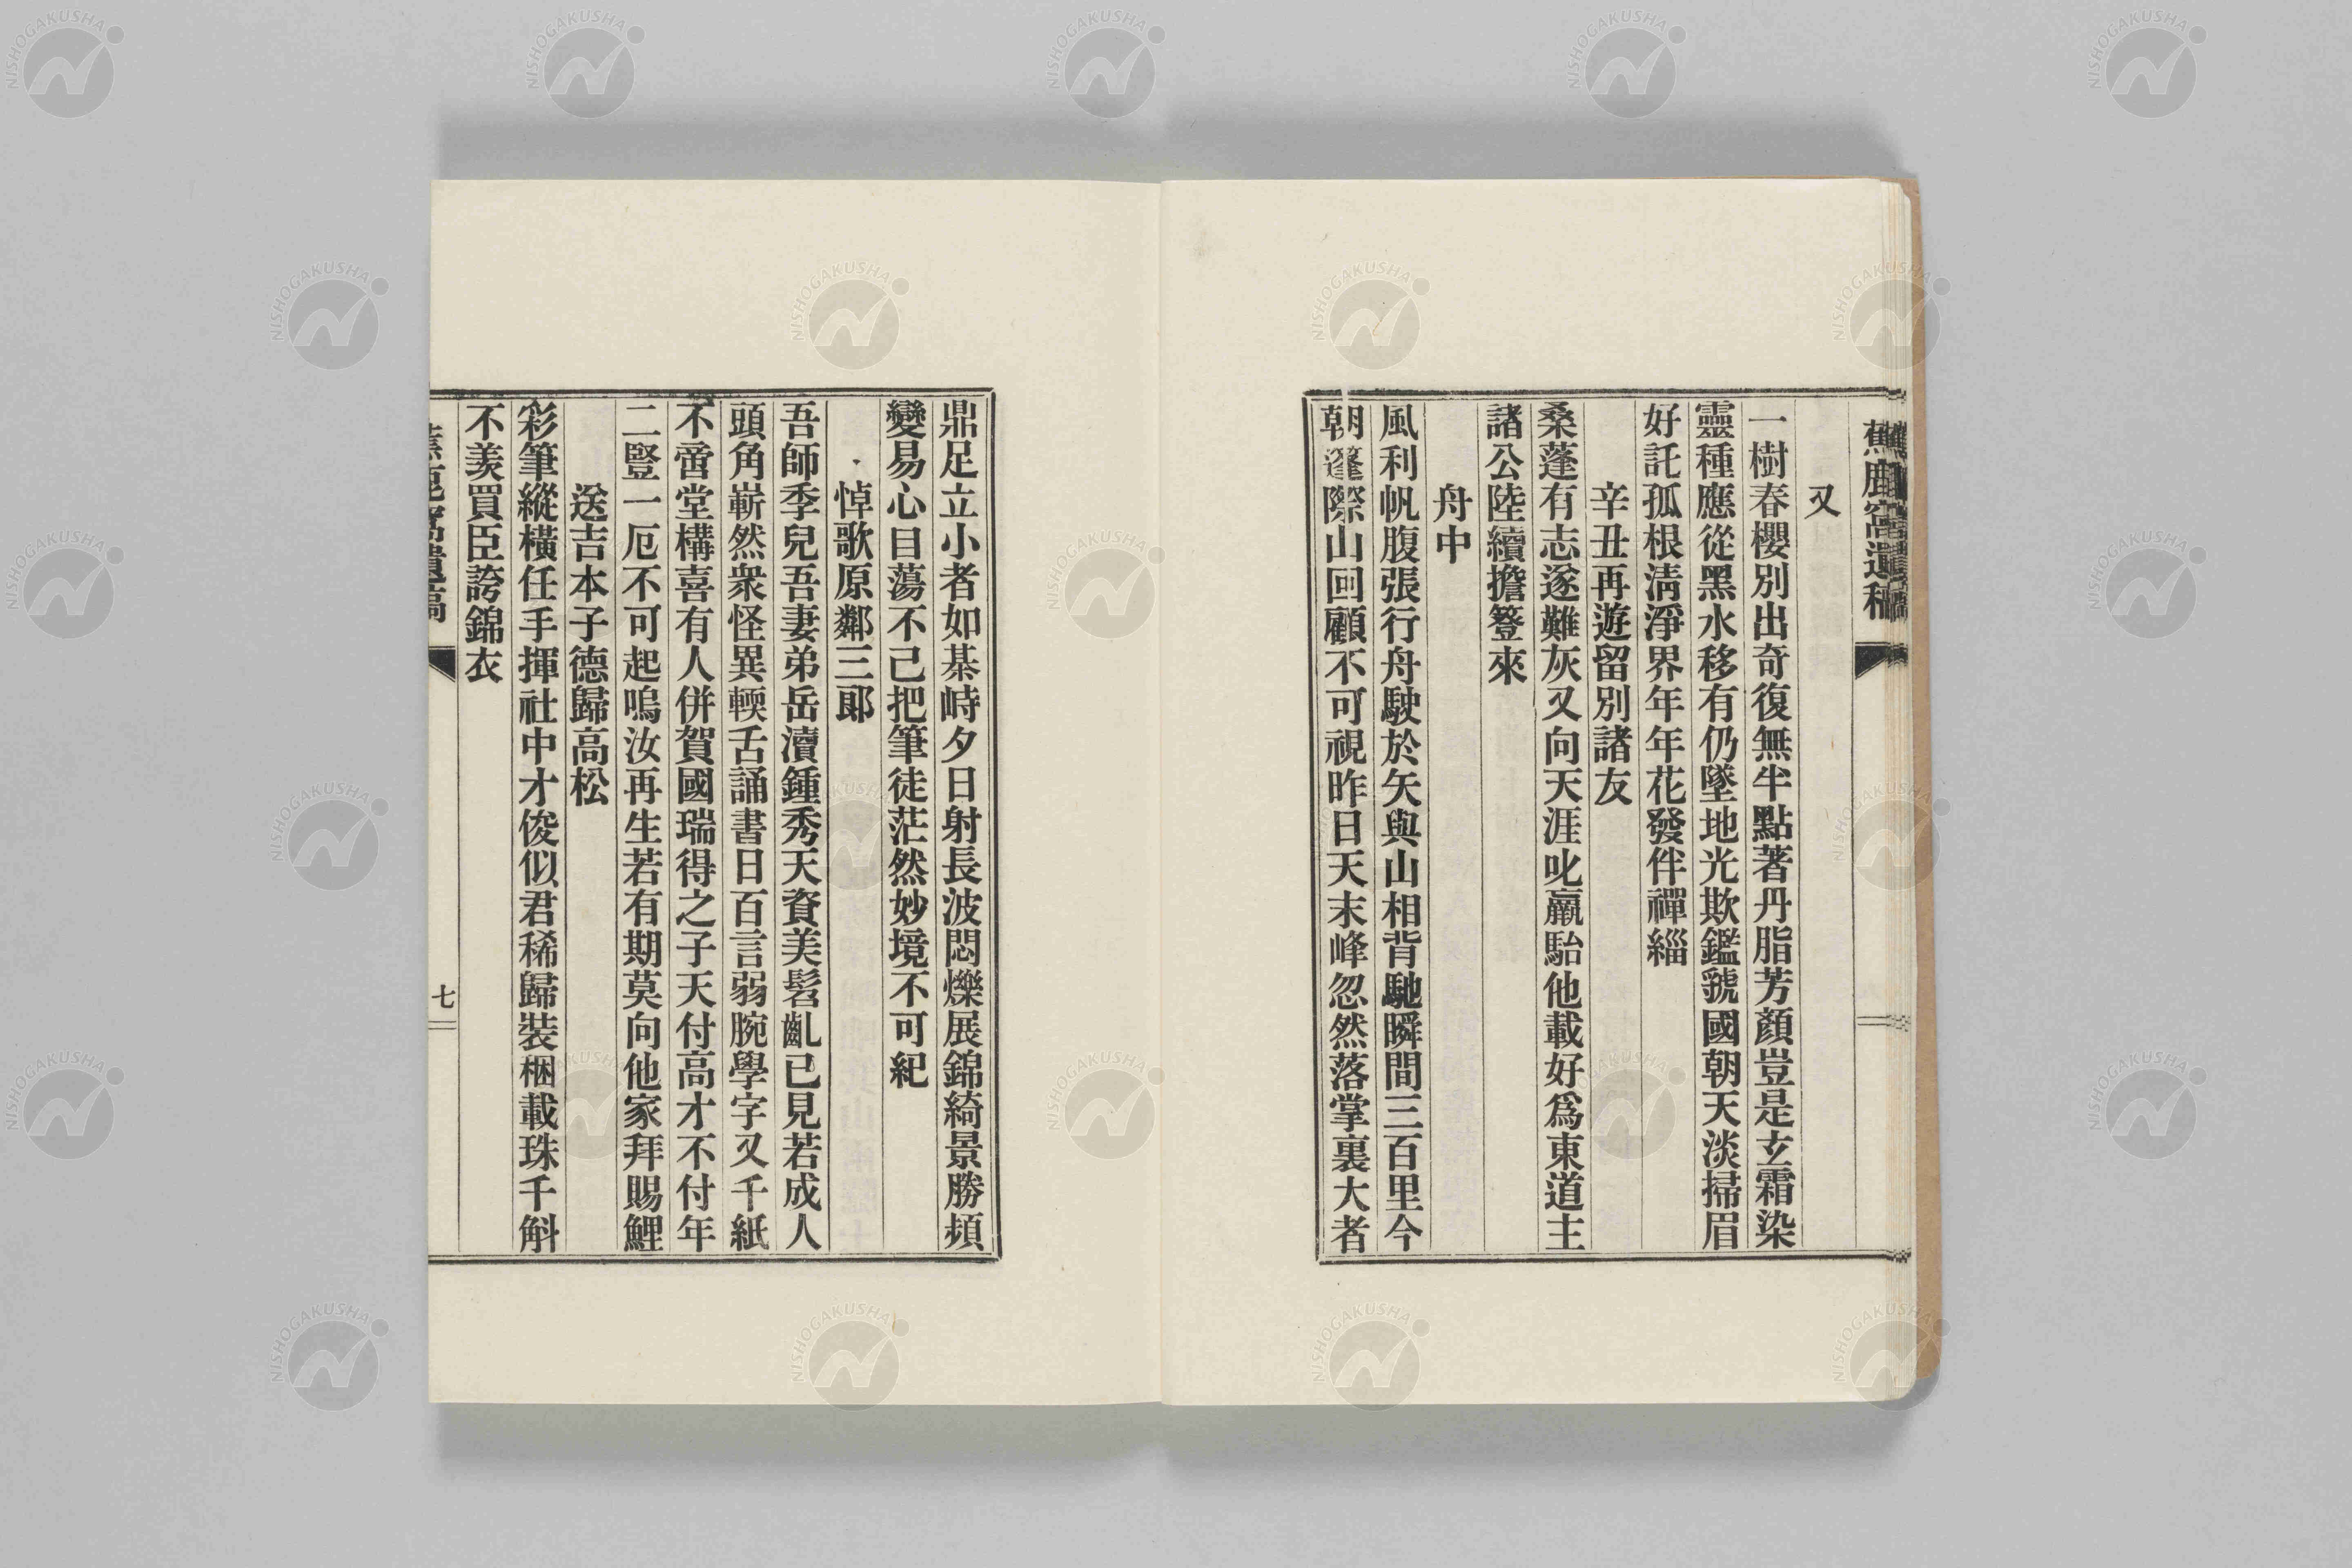 蕉鹿窩遺稿
又
一樹春櫻別出奇復無半點著丹脂芳顏豈是玄霜染
靈種應從黑水移有仍墜地光欺鑑虢國朝天淡掃眉
好託孤根淸淨界年年花發伴禪緇
辛丑再遊留別諸友
桑蓬有志遂難灰又向天涯叱羸駘他載好爲東道主
諸公陸續擔簦來
舟中
風利帆腹張行舟駛於矢與山相背馳瞬間三百里今
朝篷際山回顧不可視昨日天末峰忽然落掌裏大者
鼎足立小者如棊峙夕日射長波閃爍展錦綺景勝頻
變易心目蕩不己把筆徒茫然妙境不可紀
悼歌原鄰三郞
吾師季兒吾妻弟岳瀆鍾秀天資美髫齓已見若成人
頭角嶄然衆怪異輭舌誦書日百言弱腕學字又千紙
不啻堂構喜有人併賀國瑞得之子天付高才不付年
二豎一厄不可起嗚汝再生若有期莫向他家拜賜鯉
送吉本子德歸高松
彩筆縱橫任手揮社中才俊似君稀歸裝梱載珠千斛
不羨買臣誇錦衣
蕉鹿窩遺稿
七
NISHOGAKUSHA